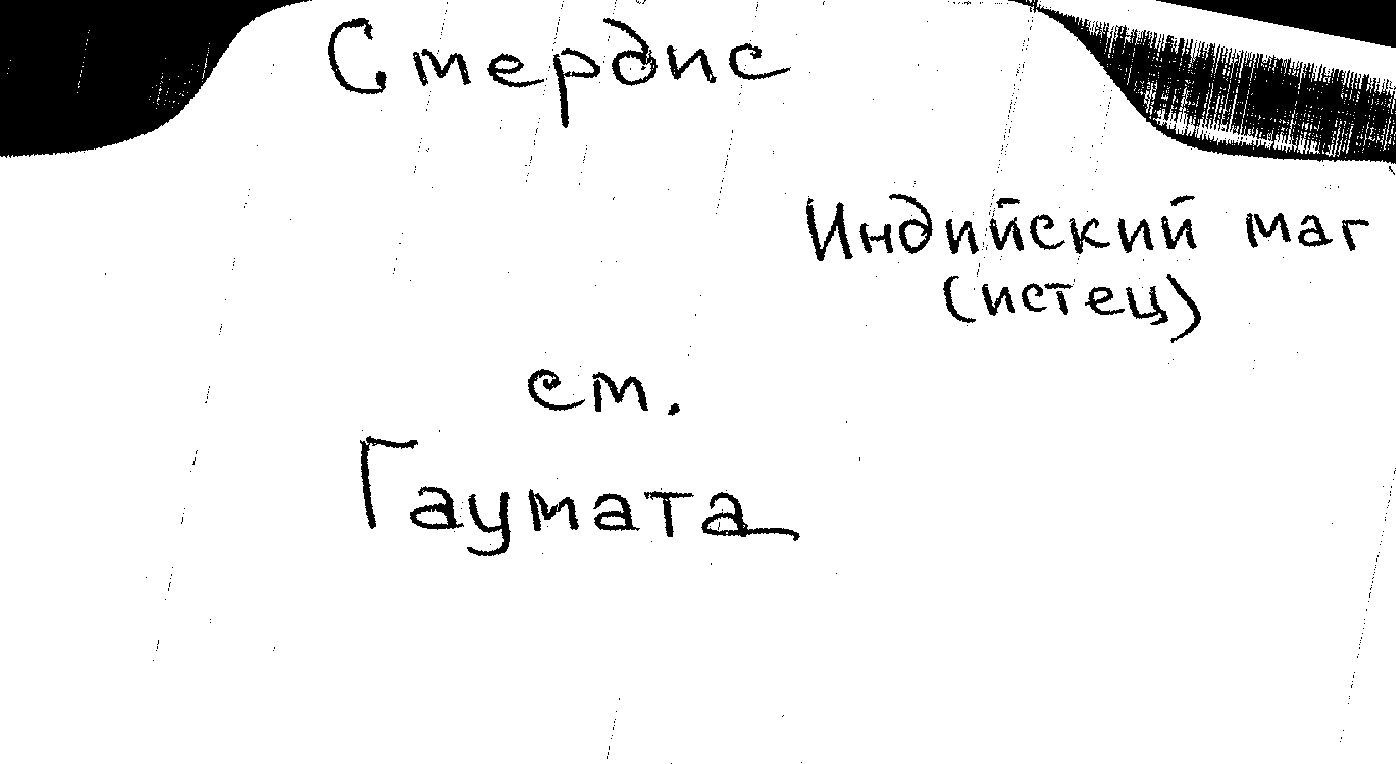 Стердис
Индийский маг
(истец)
см.
Гаумата